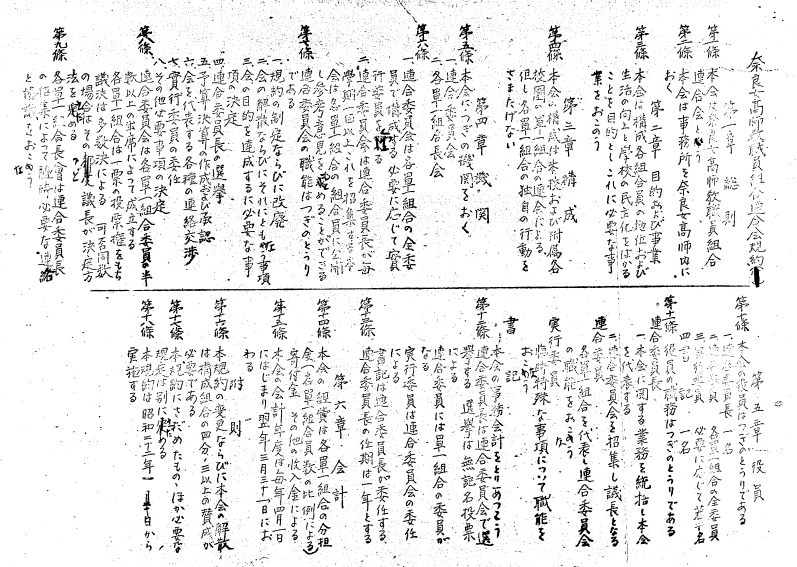 奈良女高師教職員組合連合会規約
第一章 総則
第一條 本会は奈良女高師教職員組合
連合会という
第二條 本会は事務所を奈良女高師内に
おく
第二章 目的および事業
第三條 本会は構成各組合員の地位および
生活の向上と学校の民主化をはかる
ことを目的としこれに必要な事
業をおこのう
第三章 構成
第四條 本会の構成は本校および附属各
校園の單一組合の連合による
但し各單一組合の独自の行動を
さまたげない
第四章 機関
第五條 本会につぎの機関をおく
一、連合委員会
二、各單一組合長会
第六條
一、連合委員会は各單一組合の全委
員で構成する 必要に應じて實
行委員をおく
二、連合委員会は連合委員長が毎
学期一回以上これを招集する
会は各單一組合の組合員に
し参考意見を求めることができる
第七條 連合委員会の職能はつぎのとうり
である
一、規約の制定ならびに改廃
二、会の解散ならびにそれにともなう事項
三、会の目的を達成するに必要な事
項の決定
四、連合委員長の選挙
五、予算決算の作成および承認
六、会を代表する各種の連絡交渉
七、實行委員の委任
八、その他必要事項の決定
第八條 連合委員会は各單一組合委員の半
数以上の出席によって成立する
各單一組合は一票の投票権をもち
議決は多数決による 可否同数
の場合はその都度議長が決定方
法を定める
第九條 各單一組合長会は連合委員長
の招集によって臨時必要な連絡
と協議をおこのう
第五章 役員
第十條 本会の役員はつぎのとうりである
一、連合委員長 一名
二、連合委員 各單一組合の全委員
三、実行委員 必要に応じて若干名
四、書記 一名
第十一條 役員の職務はつぎのとうりである
連合委員長
一、本会に関する業務を統括し本会
を代表する
二、連合委員会を招集し議長となる
連合委員
各單一組合を代表し連合委員会
の職能をおこのう
実行委員
臨時特殊な事項について職能を
おこのう
書記
本会の事務会計をとりあつこう
第十二條 連合委員長は連合委員会で選
挙する 選挙は無記名投票
による
連合委員には單一組合の委員が
なる
実行委員は連合委員会の委任
による
書記は連合委員長が委任する
第十三條 連合委員長の任期は一年とする
第六章 会計
第十四條 本会の経費は各單一組合の分担
金(各單一組合員数の比例による)
寄付金 その他の收入金による
第十五條 本会の会計年度は毎年四月一日
にはじまり翌年三月三十一日にお
わる
附則
第十六條 本規約の変更ならびに本会の解散
は構成組合の四分ノ三以上の賛成が
必要である
第十七條 本規約にさだめたもののほか必要な
規定は別に定める
第十八條 本規約は昭和二十二年一月十日から
実施する